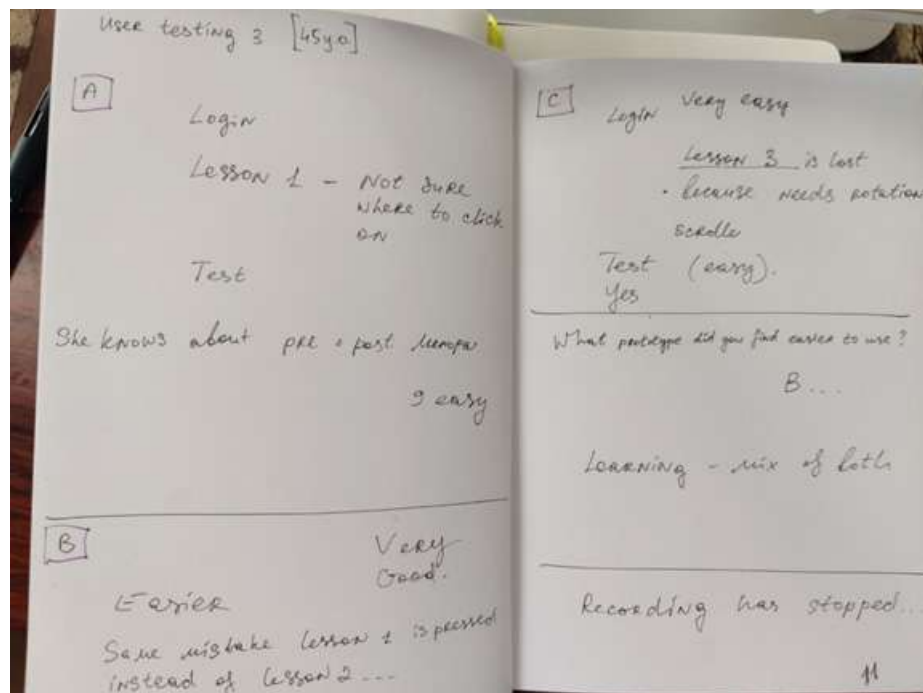 User testing 3 [45 y.o.]
A
Login
Lesson 1 - Not sure
where to click
on
Test
She knows about pre + post
9 easy
B
Very
Good.
Easier
Same mistake lesson 1 is pressed
instead of lesson 2 ...
C
Login Very easy
Lesson 3 is lost
• because needs rotation
scrolle
Test (easy).
Yes
What prototype did you find easier to use?
B ....
Learning - mix of both
Recording has stopped...
11